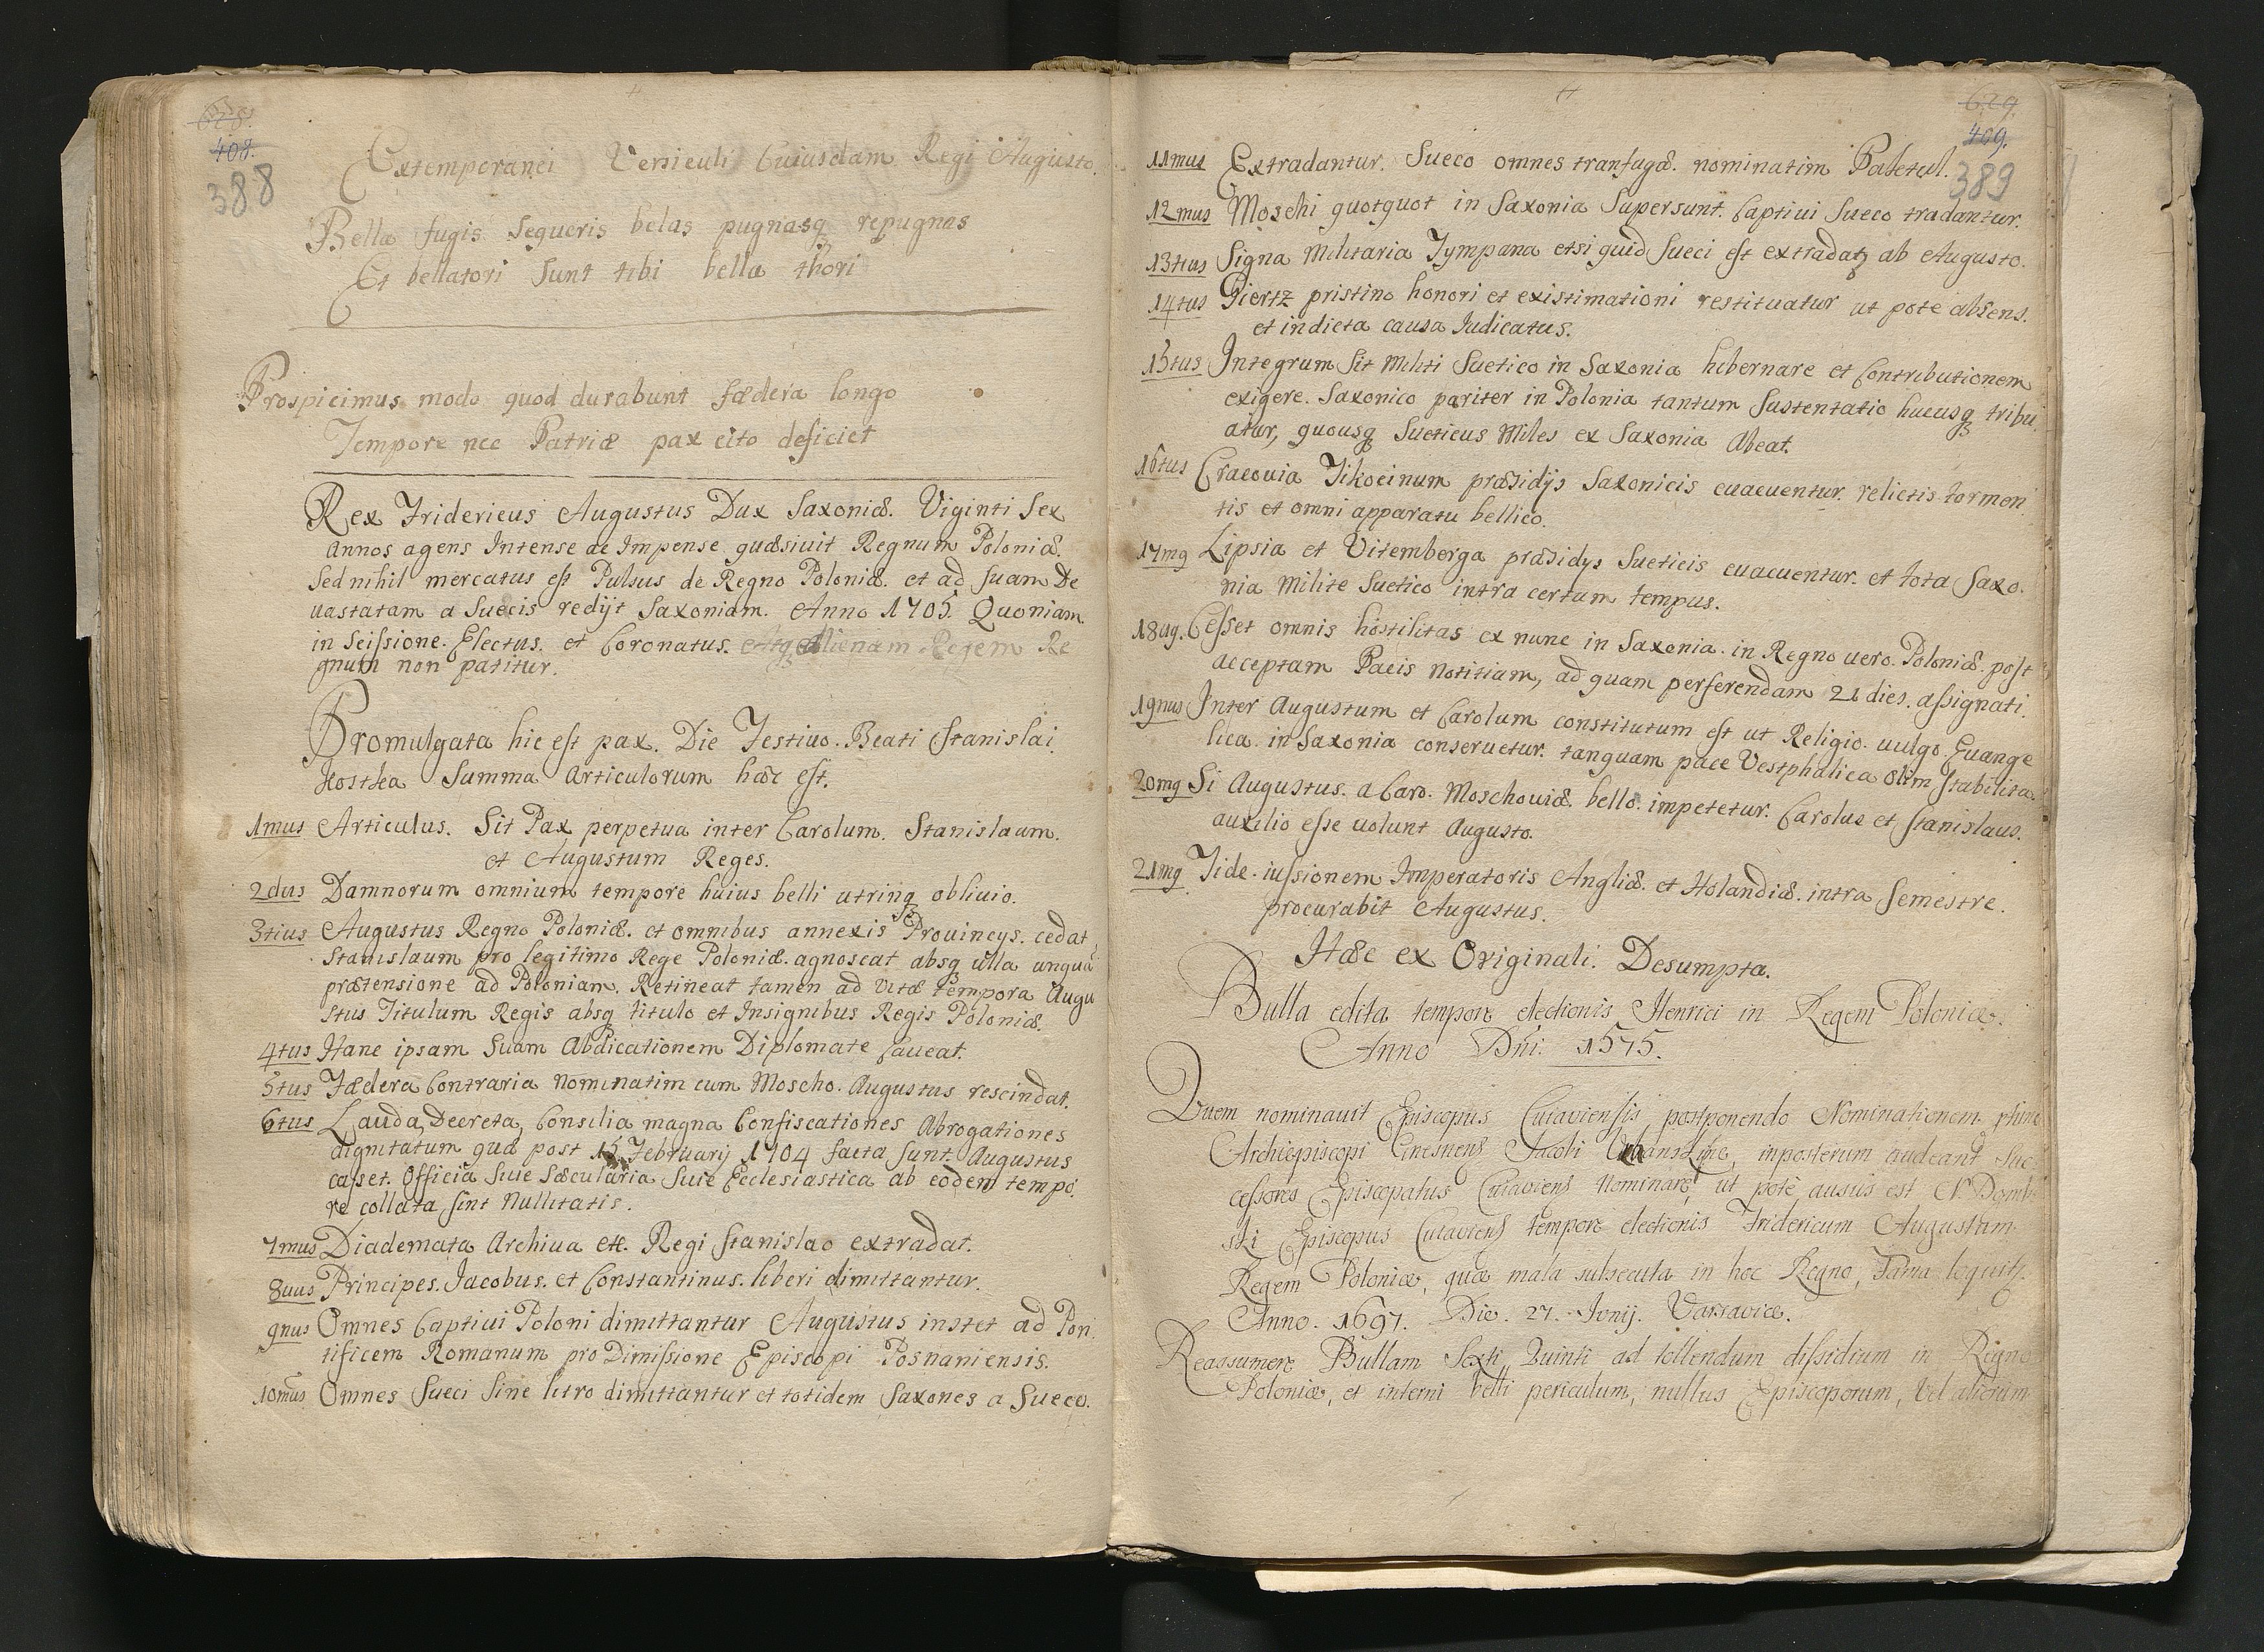 628.
408.
388
Extemporanei Versiculi Cuiusdam Regi Augusto.
Bella fugis Sequeris belas pugnasq repugnas
Et bellatori Sunt tibi bella thori
Prospicimus modo quod durabunt fædera longo
Tempore nec Patriæ pax cito deficiet
Rex Fridericus Augustus Dux Saxoniæ. Viginti Sex
Annos agens Intense ac Impense quæsiuit Regnum Poloniæ.
Sed nihil mercatus est Pulsus de Regno Poloniæ. et ad suam De
uastatam a Suecis redijt Saxoniam. Anno 1705. Quoniam
in Scissione. Electus. et Coronatus. Atq Alienam Regem Re
gnum non patitur.
Promulgata hic est pax. Die Festiuo. Beati Stanislai
Kostka Summa Articulorum hæc est.
1mus Articulus. Sit Pax perpetua inter Carolum. Stanislaum.
et Augustum Reges.
2dus Damnorum omnium tempore huius belli utrinq obliuio.
3tius Augustus Regno Poloniæ. et omnibus annexis Prouincys. cedat
Stanislaum pro legitimo Rege Poloniæ. agnoscat absq ulla unquā
prætensione ad Poloniam. Retineat tamen ad vitæ tempora Augu
stus Titulum Regis absq titulo et Insignibus Regis Poloniæ.
4tus Hanc ipsam Suam Abdicationem Diplomate Caueat.
5tus Fædera Contraria nominatim cum Moscho. Augustus rescindat.
6tus Lauda, Decreta, Consilia magna Confiscationes Abrogationes
dignitatum quæ post 15 Februarij 1704 facta sunt. Augustus
casset. Officia Suie Sæcularia Suie Ecclesiastica ab eodem tempo
re collata sint Nullitatis.
7mus Diademata Archiua ett. Regi Stanislao extradat.
8uus Principes. Jacobus. et Constantinus. liberi dimittantur.
9nus Omnes Captiui Poloni dimittantur Augustus instet ad Pon
tificem Romanum pro Dimissione Episcopi Posnaniensis.
10mus Omnes Sueci Sine litro dimittantur et totidem Saxones a Sueco.
629.
409.
389
11mus Extradantur. Sueco omnes tranfugæ. nominatim Patetul.
12mus Moschi quotquot in Saxonia Supersunt. Captiui Sueco tradantur.
13tius Signa Militaria Tympana etsi quid Sueci est extradatz ab Augusto.
14tus Giertz pristino honori et existimationi restituatur ut pote absens.
et indicta causa Iudicatus.
15tus Integrum Sit Militi Suetico in Saxonia hibernare et Contributionem
exigere. Saxonico pariter in Polonia tantum Sustentatio hucusq tribu
atur, quousq Sueticus Miles ex Saxonia Abeat.
16tus Cracouia Tikocinum præsidijs Saxonicis euacuentur. relictis tormen
tis et omni apparatu bellico.
17mg Lipsia et Vitemberga præsidys Sueticis euacuentur. et tota Saxo.
nia Milite Suetico intra certum tempus.
18ug. Cesset omnis hostilitas ex nunc in Saxonia. in Regno uero. Poloniæ. post
acceptam Pacis Notitiam, ad quam perferendam 21 dies. assignati.
19nus Inter Augustum et Carolum constitutum est ut Religio. uulgo Euange
lica. in Saxonia conseruetur. tanquam pace Vestphalica olim stabilita.
20mg Si Augustus. a Caro. Moschouiæ. bello. impetetur. Carolus et Stanislaus.
auxilio esse uolunt Augusto.
21mg Fide. iussionem Imperatoris Angliæ. et Holandiæ. intra Semestre.
procurabit Augustus.
Hæc ex Originali. Desumpta.
Bulla edita tempore electionis Henrici in Regem Poloniæ.
Anno Dñi. 1575.
Quem nominauit Episcopus Cuiauiensis postponendo Nominationem
Archiepiscopi Gnesnens Jacobi inposterum audeant Suc
cessores Episcopatus Cuiauiens Nominare, ut pote ausus est N. Domb
ski Episcopus Cuiauiens tempore electionis Fridericum Augustum
Regem Poloniæ, quæ mala subsecuta in hoc Regno, Fama loquitz.
Anno. 1697. Die. 27. Junij. Varsaviæ.
Reassumere Bullam Sexti Quinti ad tollendum dissidium in Regno
Poloniæ, et interni belli periculum, nullus Episcoporum, Vel aliorum